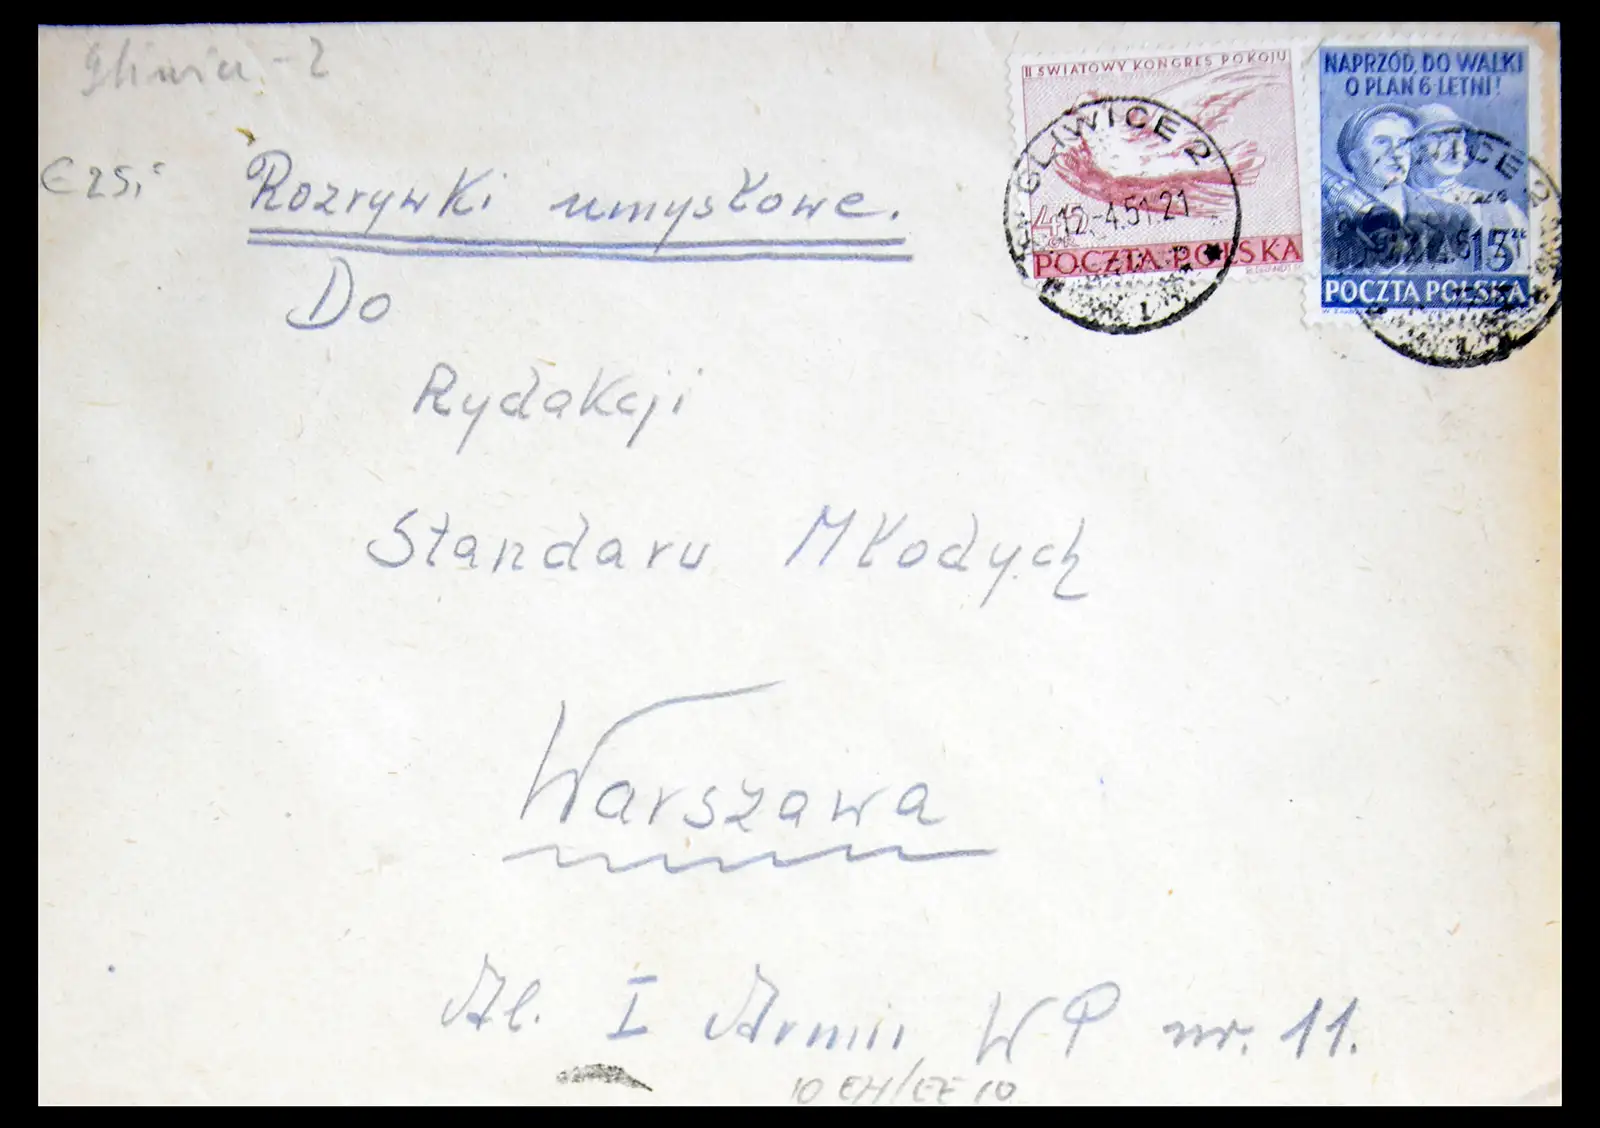 Gliwice - 2
€ 25,-
Rozrywki umysłowe.
Do
Rydakcji
Standaru Młodych
Warszawa
Al. I Armii WP nr. 11.
10 EH/EE 10
II ŚWIATOWY KONGRES POKOJU
45
POCZTA POLSKA
NAPRZÓD, DO WALKI
O PLAN 6-LETNI!
15 zł
POCZTA POLSKA
GLIWICE 2
12.-4.51.21